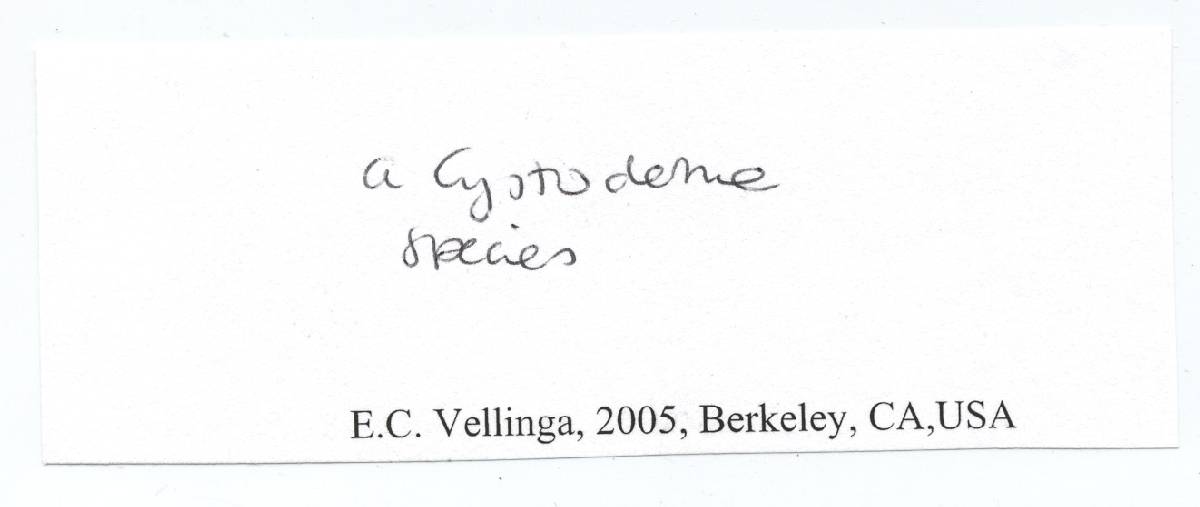 a Cystoderma
species
E.C. Vellinga, 2005, Berkeley, CA,USA